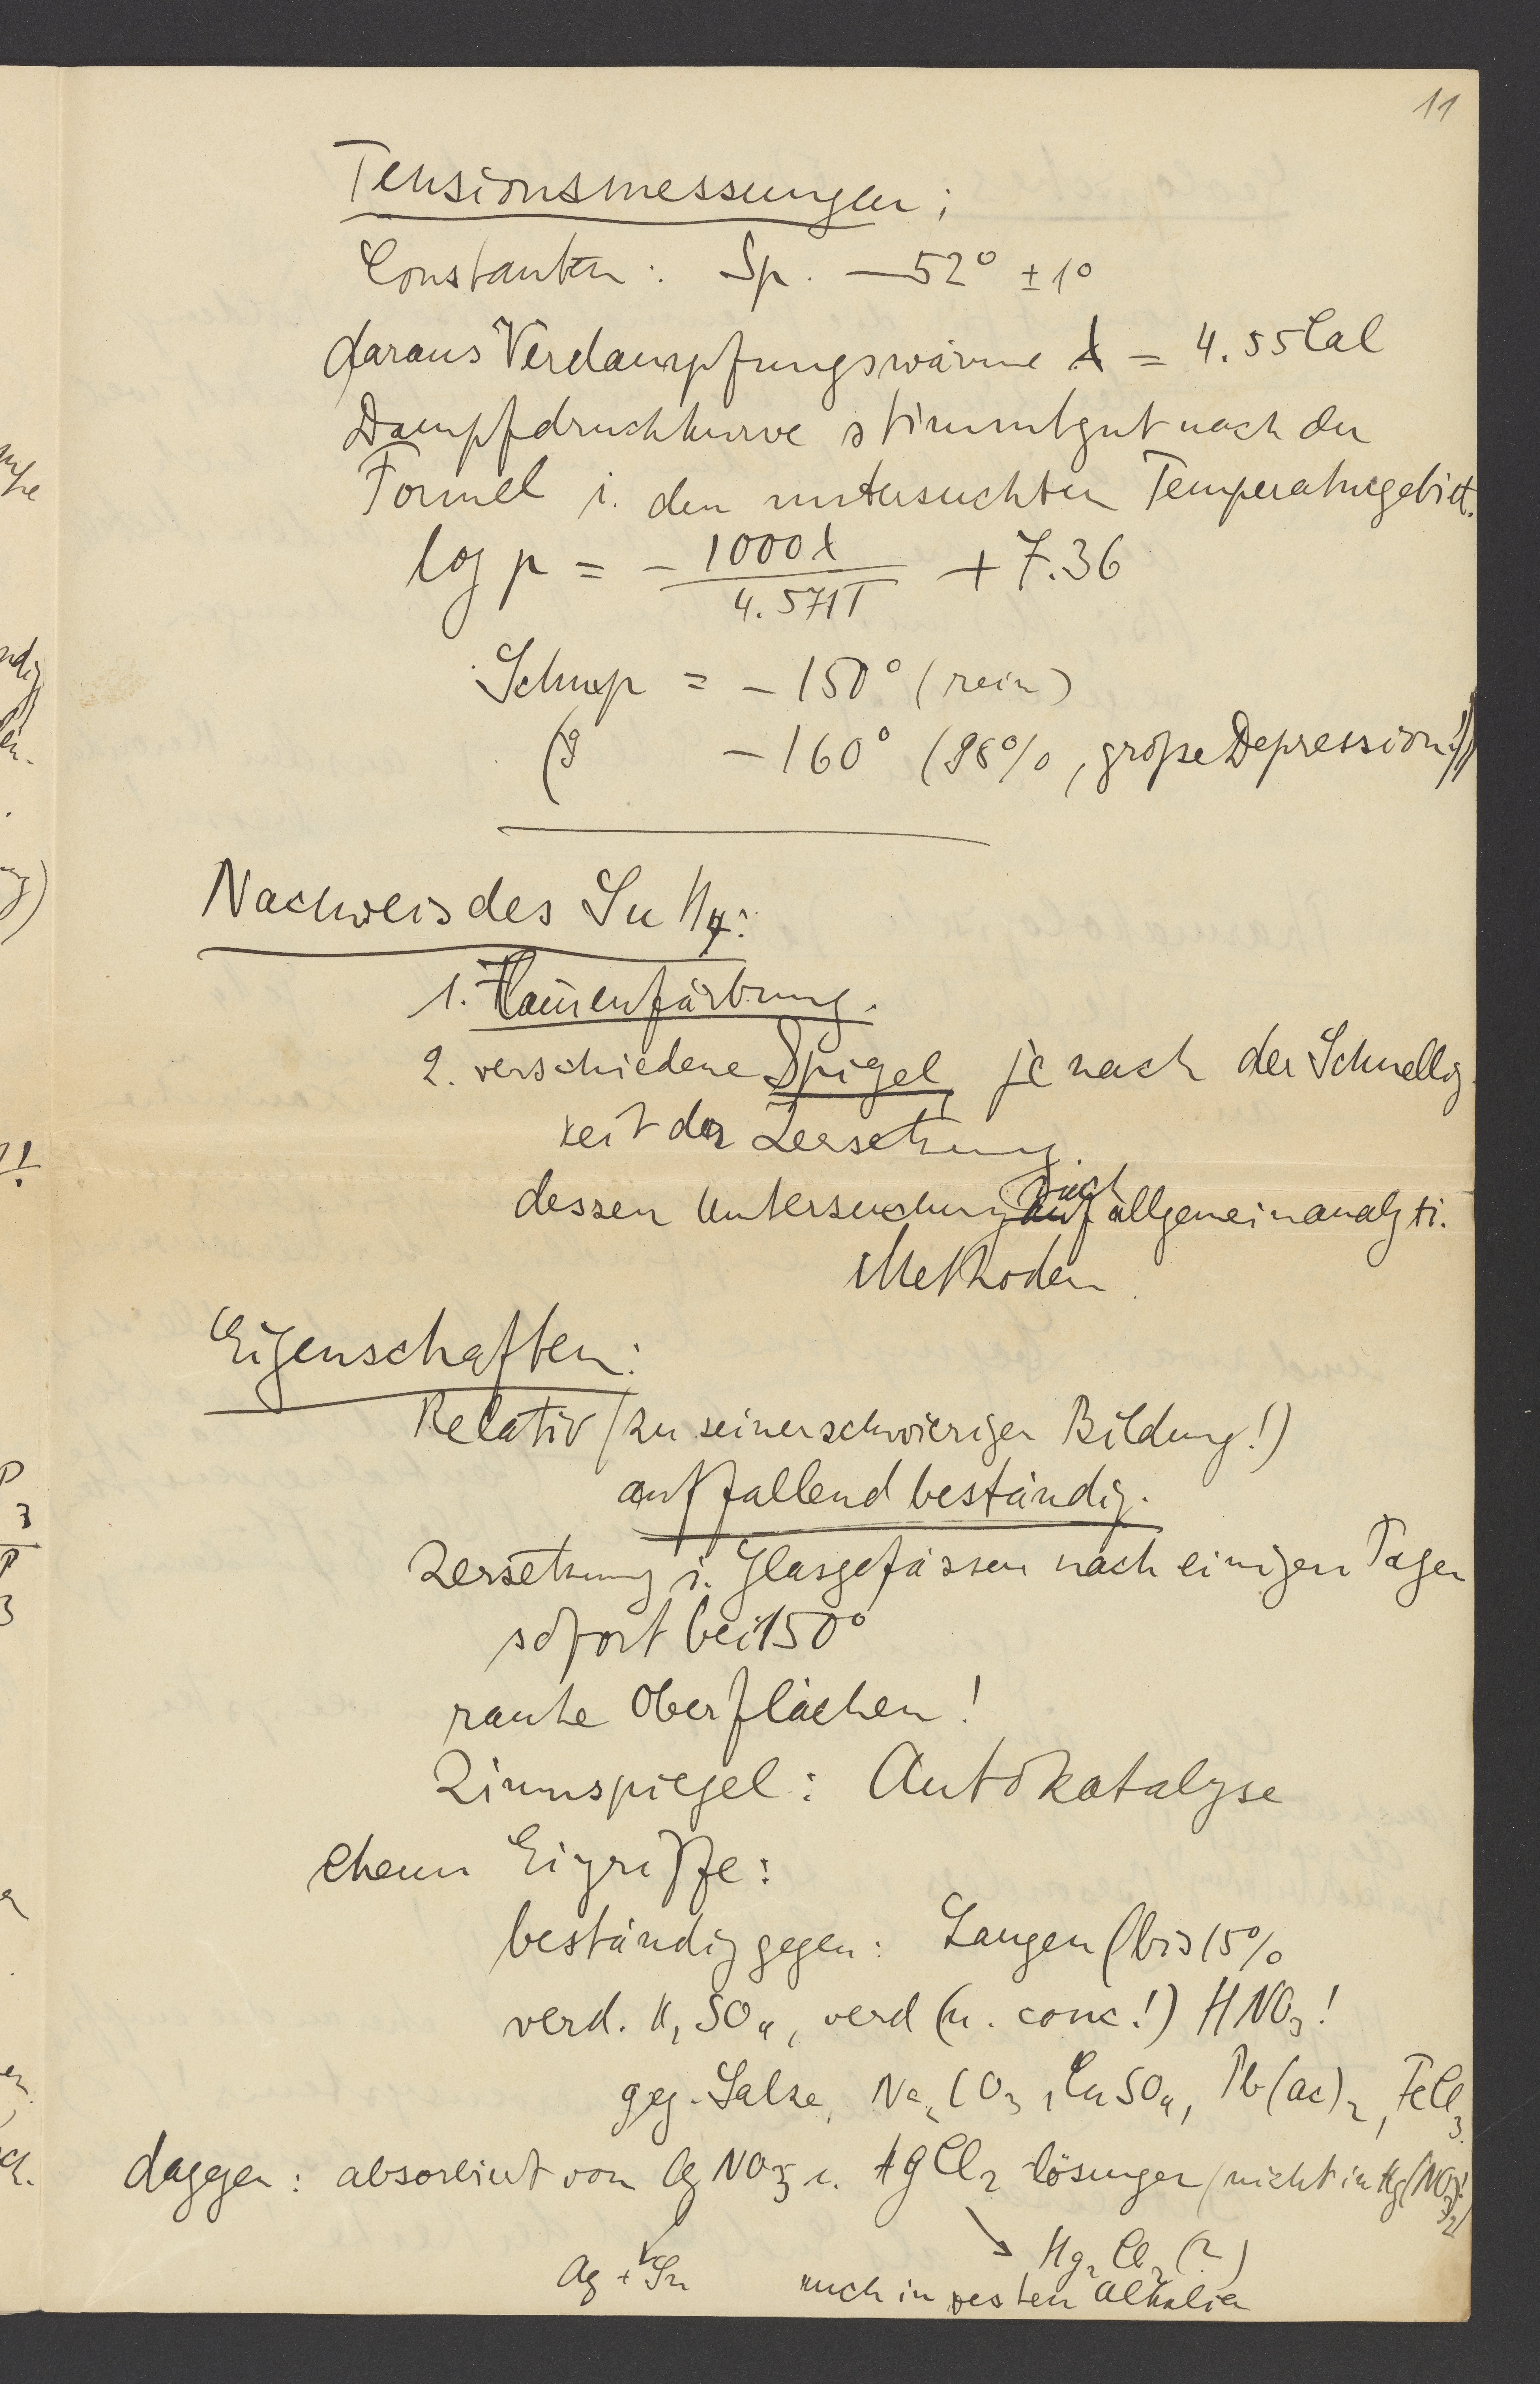 11
Tensionsmessungen;
Constanten: Sp. —52° ±1°
daraus Verdampfungswärme λ = 4.55 Cal
Dampfdruckkurve stimmt gut nach der
Formel i. den untersuchten Temperaturgebiet.
log p = - 1000λ / 4.571T + 7.36
Schmp = -150° (rein)
-160° (98%, große Depression!))
Nachweis des SnH4:
1. Flam̄enfärbung.
2. verschiedene Spigel, je nach der Schnellig
keit der Zersetzung.
dessen Untersuchung nach allgemein analyti.
Methoden.
Eigenschaften:
Relativ (zu seiner schwierigen Bildung!)
auffallend beständig.
Zersetzung i. Glasgefässen nach einigen Tagen
sofort bei 150°
rauhe Oberflächen!
Zinnspiegel: Autokatalyse
chem Eigriffe:
beständig gegen: Laugen (bis 15%
verd. H2SO4, verd (u. conc!) HNO3!
geg. Salze, Na2CO3, CuSO4, Pb(ac)2, FeCl3.
daggen: absorbiert von AgNO3 u. HgCl2 lösungen (nicht in Hg(NO3)2!)
Hg2Cl2(?)
Ag + Sn auch in festen Alkalien